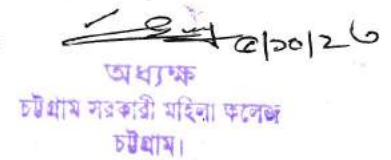 ৫/১০/২৩
অধ্যক্ষ
চট্টগ্রাম সরকারী মহিলা কলেজ
চট্টগ্রাম।